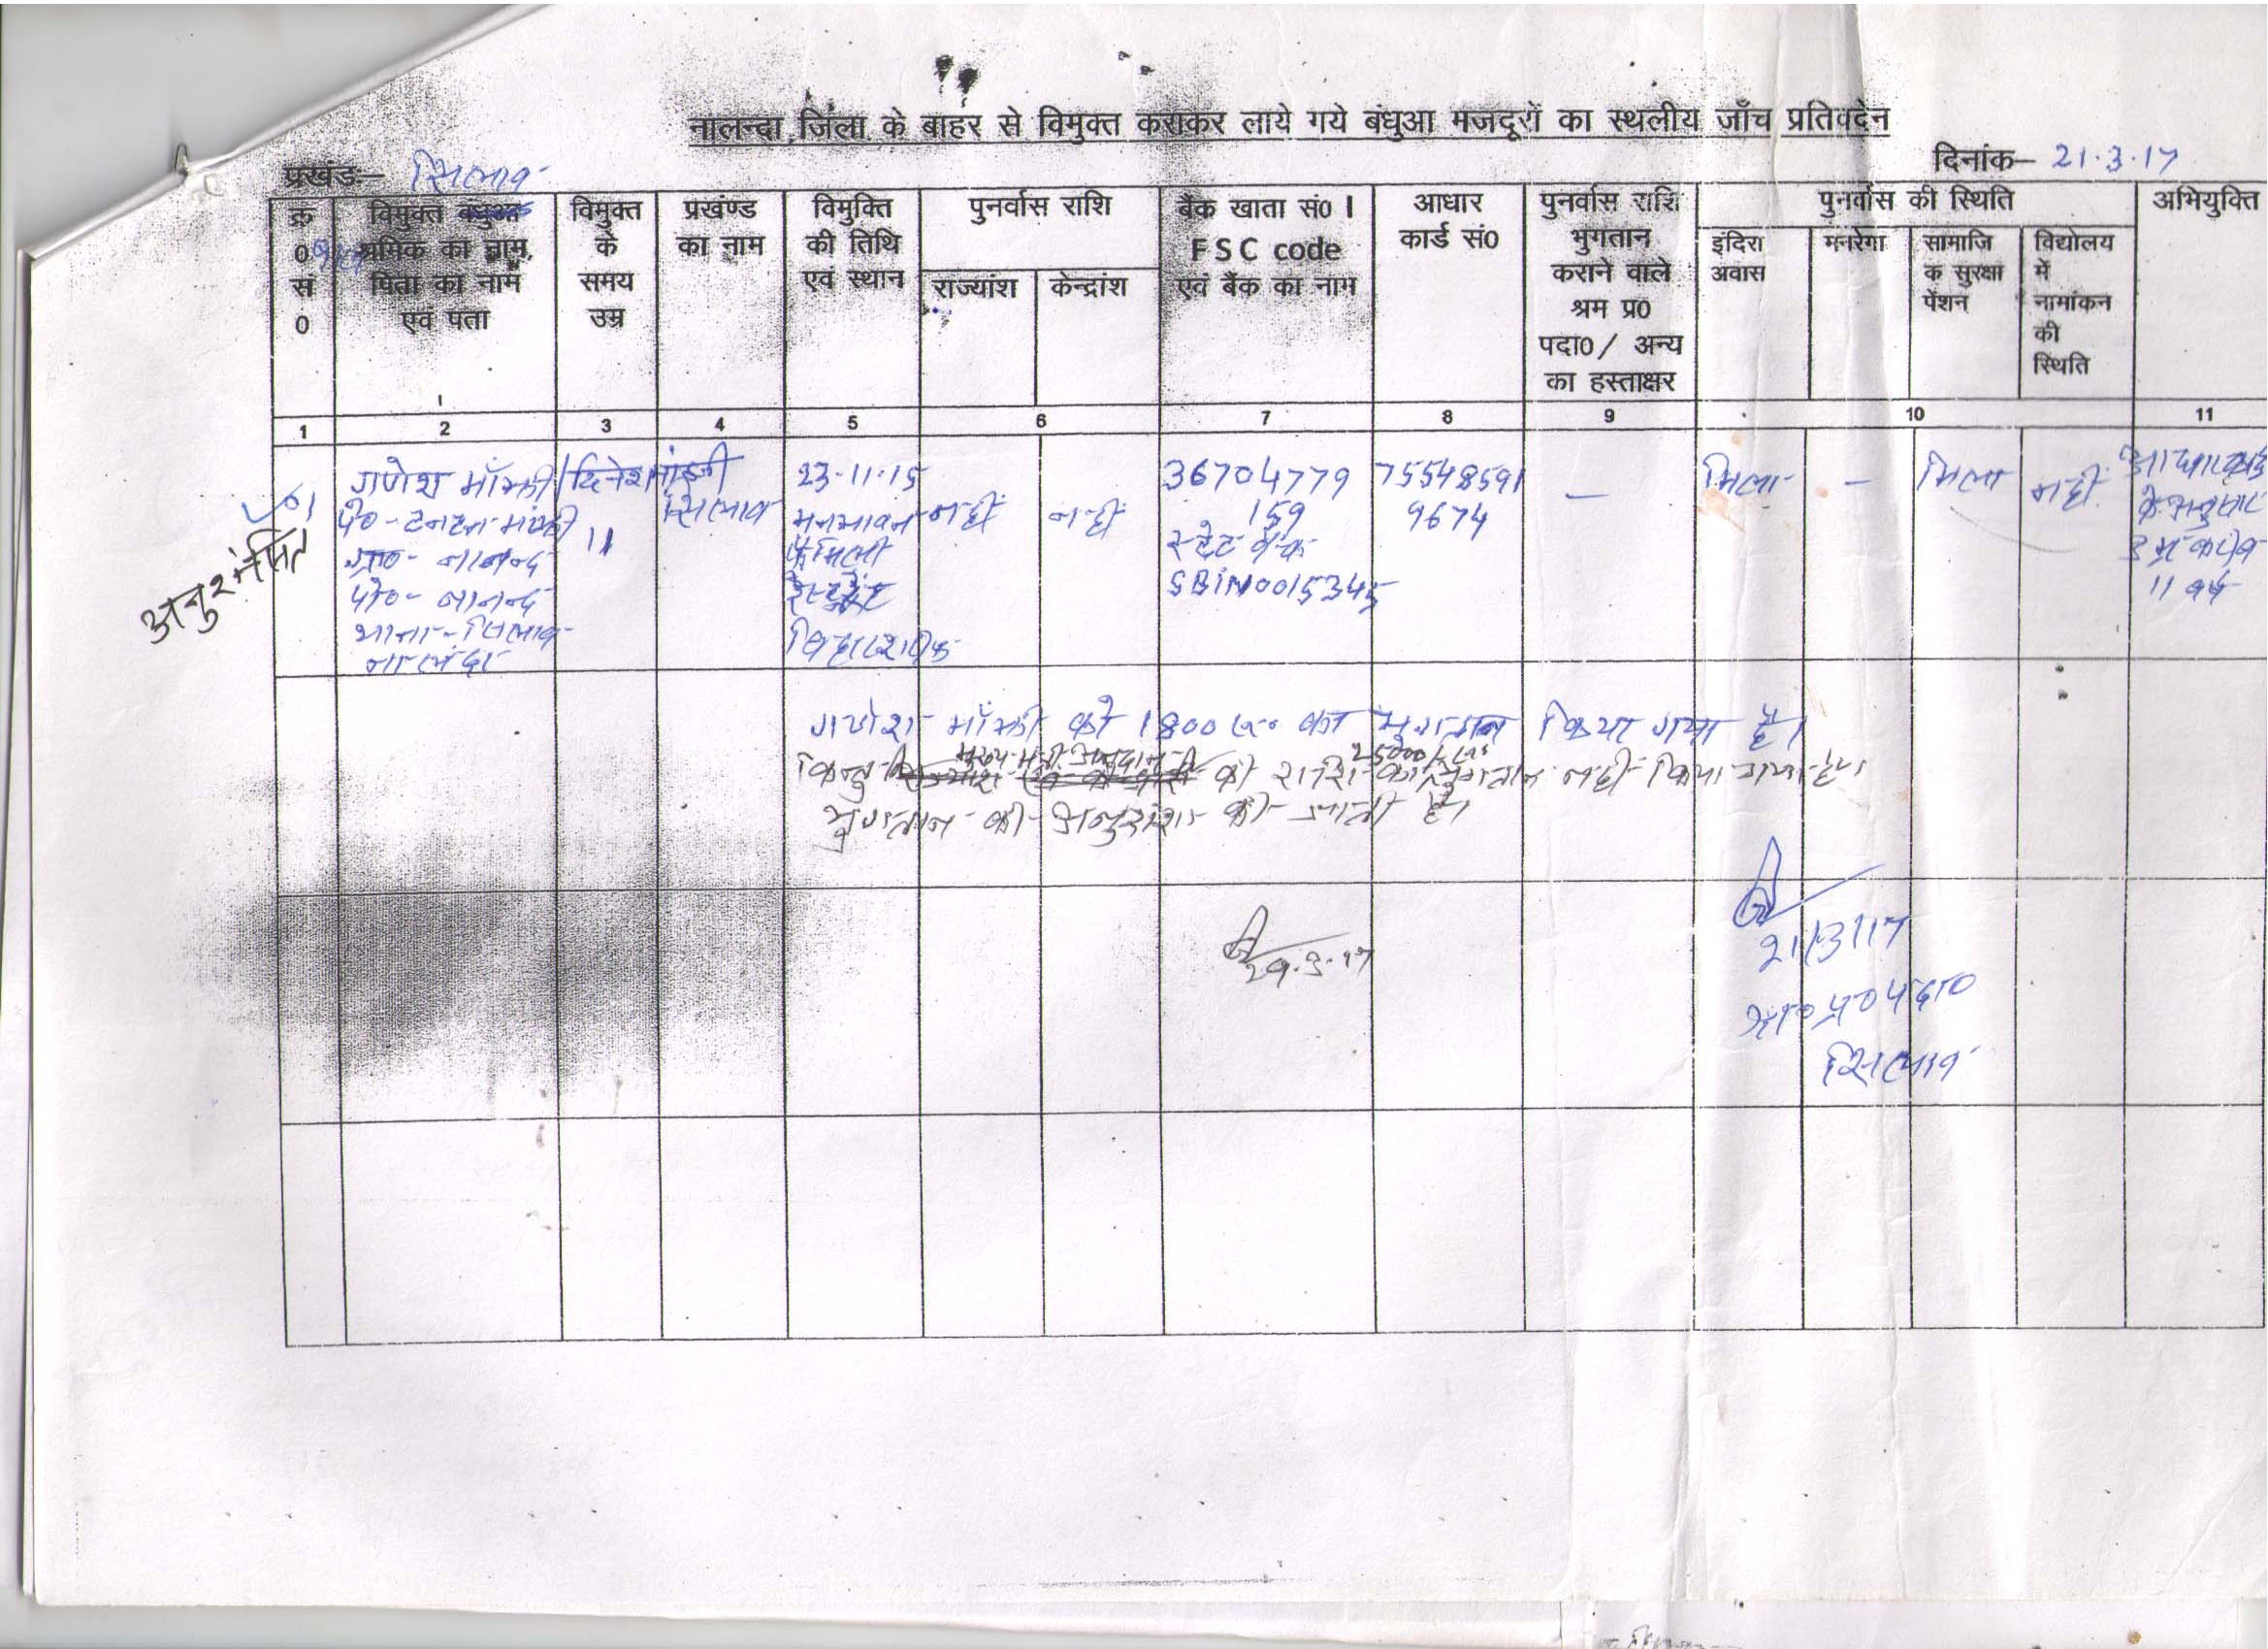 नालन्दा जिला के बाहर से विमुक्त कराकर लाये गये बंधुआ मजदूरों का स्थलीय जाँच प्रतिवदेन
प्रखंडः– सिलाव
दिनांक– 21.3.17
क्र0स0
विमुक्त बंधुआ
श्रमिक का नाम,
पिता का नाम
एवं पता
विमुक्त
के
समय
उम्र
प्रखंण्ड
का नाम
विमुक्ति
की तिथि
एवं स्थान
पुनर्वास राशि
राज्यांश
केन्द्रांश
बैंक खाता सं0 I
FSC code
एवं बैंक का नाम
आधार
कार्ड सं0
पुनर्वास राशि
भुगतान
कराने वाले
श्रम प्र0
पदा0/ अन्य
का हस्ताक्षर
पुनर्वास की स्थिति
इंदिरा
अवास
मनरेगा
सामाजि
क सुरक्षा
पेंशन
विद्योलय
में
नामांकन
की
स्थिति
अभियुक्ति
1 2 3 4 5 6 7 8 9 10 11
अनुशंसित
01
गणेश माँझी/दिनेश मांझी
पे0-टनटन मांझी
ग्रा0- नानन्द
पो0- नानन्द
थाना-सिलाव
नालंदा
11
सिलाव
23-11-15
मनभावन
फैमिली
रेस्टोरेंट
नहीं
नहीं
36704779
159
स्टेट बैंक
SBIN0015345
75548591
9674
—
मिला
—
मिला
नहीं
आधार कार्ड
के अनुसार
उम्र करीब
11 वर्ष
गणेश माँझी को 1800 रू० का भुगतान किया गया है।
मुख्य मंत्री अनुदान 25000/रू०
किन्तु की राशि का भुगतान नहीं किया गया है।
भुगतान की अनुशंसा की जाती है।
29.3.17
21/3/17
श्र0 प्र0 पदा0
सिलाव